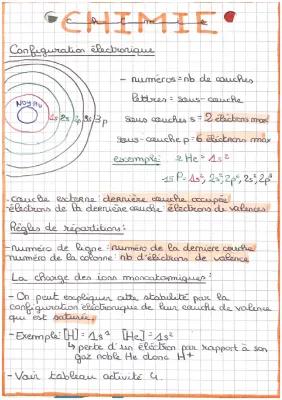 CHIMIE
Configuration électronique
- numéros = nb de couches
lettres = sous-couche
NOYAU
1s 2s 2p 3s 3p
sous couches s = 2 électrons max
sous-couche p = 6 électrons max
exemple: 2 He = 1s²
15 P = 1s², 2s², 2p⁶, 3s², 3p³
- couche externe: dernière couche occupée
- électrons de la dernière couche: électrons de valences
Règles de répartitions:
- numéro de ligne: numéro de la dernière couche
numéro de la colonne: nb d'électrons de valence
La charge des ions monoatomiques:
- On peut expliquer cette stabilité par la
configuration électronique de leur couche de valence
qui est saturée.
- Exemple: [H] = 1s¹ [He] = 1s²
↳ perte d'un électron par rapport à son
gaz noble He donc H⁺
- Voir tableau activité 4.